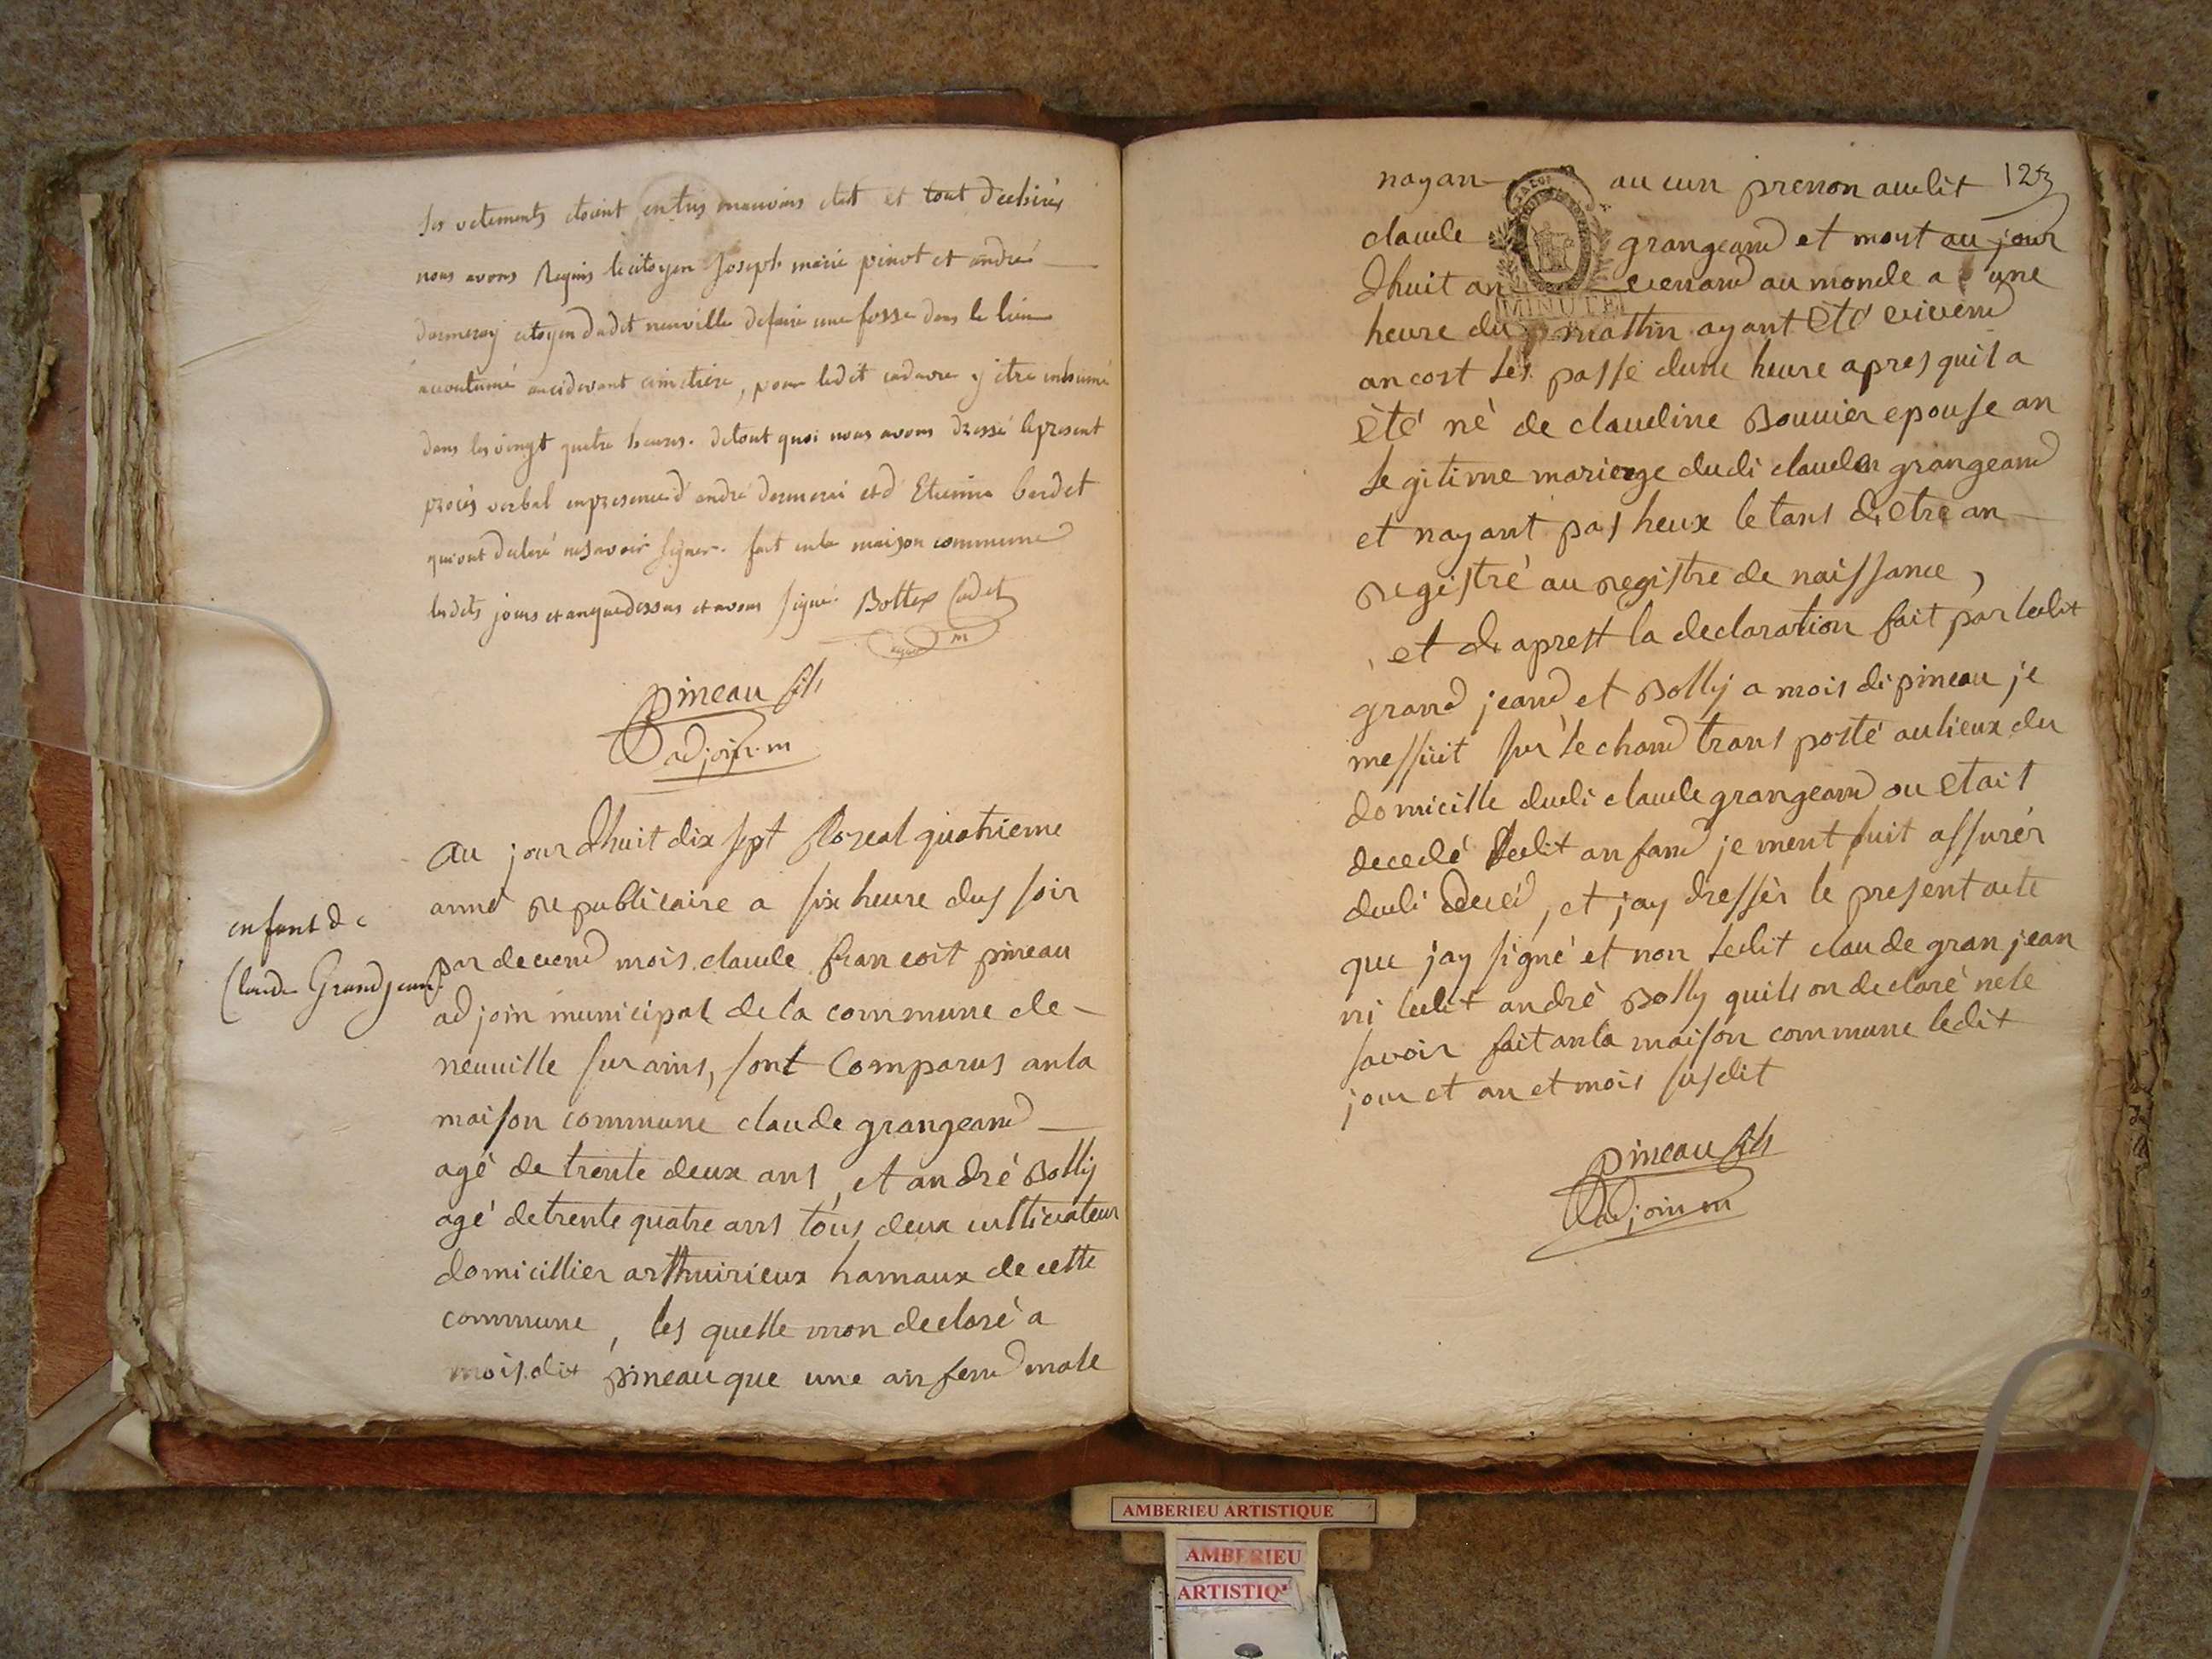 ses vetements etoient en tres mauvais etat et tout dechirés
nous avons Requis le citoyen Joseph marie pinot et andré
dermeray citoyen dudit neuville de faire une fosse dans le lieu
accoutumé au cidevant cimetiere, pour ledit cadavre y etre inhumé
dans les vingt quatre heures. de tout quoi nous avons dressé le present
procès verbal en presence d'andré dermerai et d'Etienne berdet
qui ont declaré ne savoir signer. fait en la maison commune
lesdits jours et an que dessus et avons signé. Bottex Cadet
pineau fils
adjoin. m
enfant de
Claude Grandjean
au jour dhuit dix sept floreal quatrieme
anné republicaire a six heure dus soir
par devend mois claude francoit pineau
adjoin municipal de la commune de
neuville sur ains, sont Comparus an la
maison commune claude grangeand
agé de trente deux ans, et andré Bolly
agé de trente quatre ans tous deux cultivateur
domicillier a thuirieux hamaux de cette
commune, les quelle mon declaré a
mois dit pineau que une anfend male
nayan au cun prenon audit 123
claude grangeand et mort au jour
dhuit an venand au monde a une
heure du mattin ayant été vivend
MINUTE
ancort les passe dune heure apres quil a
été né de claudine Bouvier epouse an
legitime mariege dudi claude grangeand
et nayant pas heux le tans d,etre an
registré au registre de naissance,
et d,aprest la declaration fait par ledit
grand jeand et Bolly a mois di pineau je
messuit sur le chand trans posté au lieux du
domicille dudi claude grangeand ou etait
decedé ledit anfand je ment suit assurér
dudi decéd, et jay dressér le present acte
que jay signé et non ledit claude gran jean
ni ledit andré Bolly quils on declaré nele
savoir fait an la maison commune ledit
jour et an et mois susdit
pineau fils
adjoin m
AMBERIEU ARTISTIQUE
AMBERIEU
ARTISTIQ